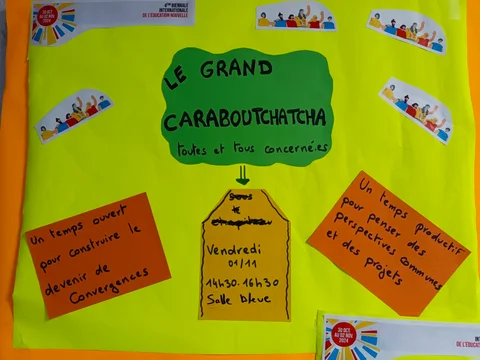 30 OCT
AU 02 NOV
2024
4ÈME BIENNALE
INTERNATIONALE
DE L'ÉDUCATION NOUVELLE
LE GRAND
CARABOUTCHATCHA
toutes et tous concerné.es
Sous
le
chapiteau
Vendredi
01/11
14h30-16h30
Salle bleue
Un temps ouvert
pour construire le
devenir de
Convergences
Un temps productif
pour penser des
perspectives communes
et des projets
30 OCT
AU 02 NOV
2024
INTERN
DE L'ÉDUCA